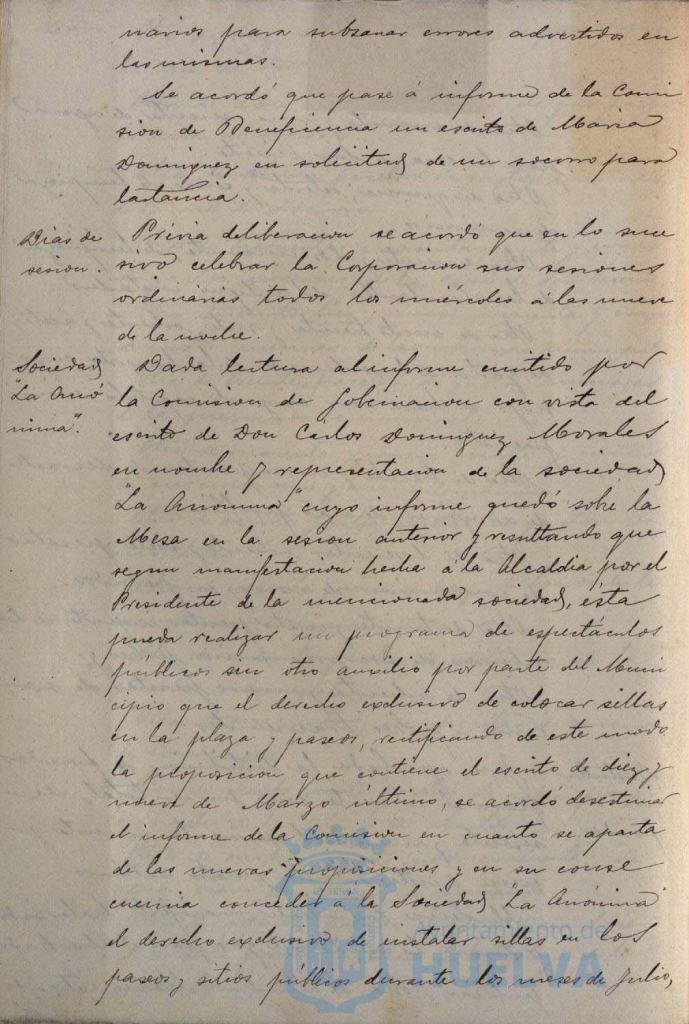 narios para subsanar errores advertidos en
las mismas.
Se acordó que pase á informe de la Comi
sion de Beneficencia un escrito de Maria
Dominguez en solicitud de un socorro para
lactancia.
Dias de
sesion.
Previa deliberacion se acordó que en lo suce
sivo celebrar la Corporacion sus sesiones
ordinarias todos los miércoles á las nueve
de la noche.
Sociedad
"La Anó
nima".
Dada lectura al informe emitido por
la Comision de Gobernacion con vista del
escrito de Don Carlos Dominguez Morales
en nombre y representacion de la sociedad
"La Anónima" cuyo informe quedó sobre la
Mesa en la sesion anterior y resultando que
segun manifestacion hecha á la Alcaldia por el
Presidente de la mencionada sociedad, ésta
pueda realizar un programa de espectáculos
públicos sin otro auxilio por parte del Muni
cipio que el derecho exclusivo de colocar sillas
en la plaza y paseos, rectificando de este modo
la proposicion que contiene el escrito de diez y
nueve de Marzo último, se acordó desestimar
el informe de la Comision en cuanto se aparta
de las nuevas proposiciones y en su conse
cuencia conceder á la Sociedad "La Anónima"
el derecho exclusivo de instalar sillas en los
paseos y sitios públicos durante los meses de Julio,
Ayuntamiento de
HUELVA